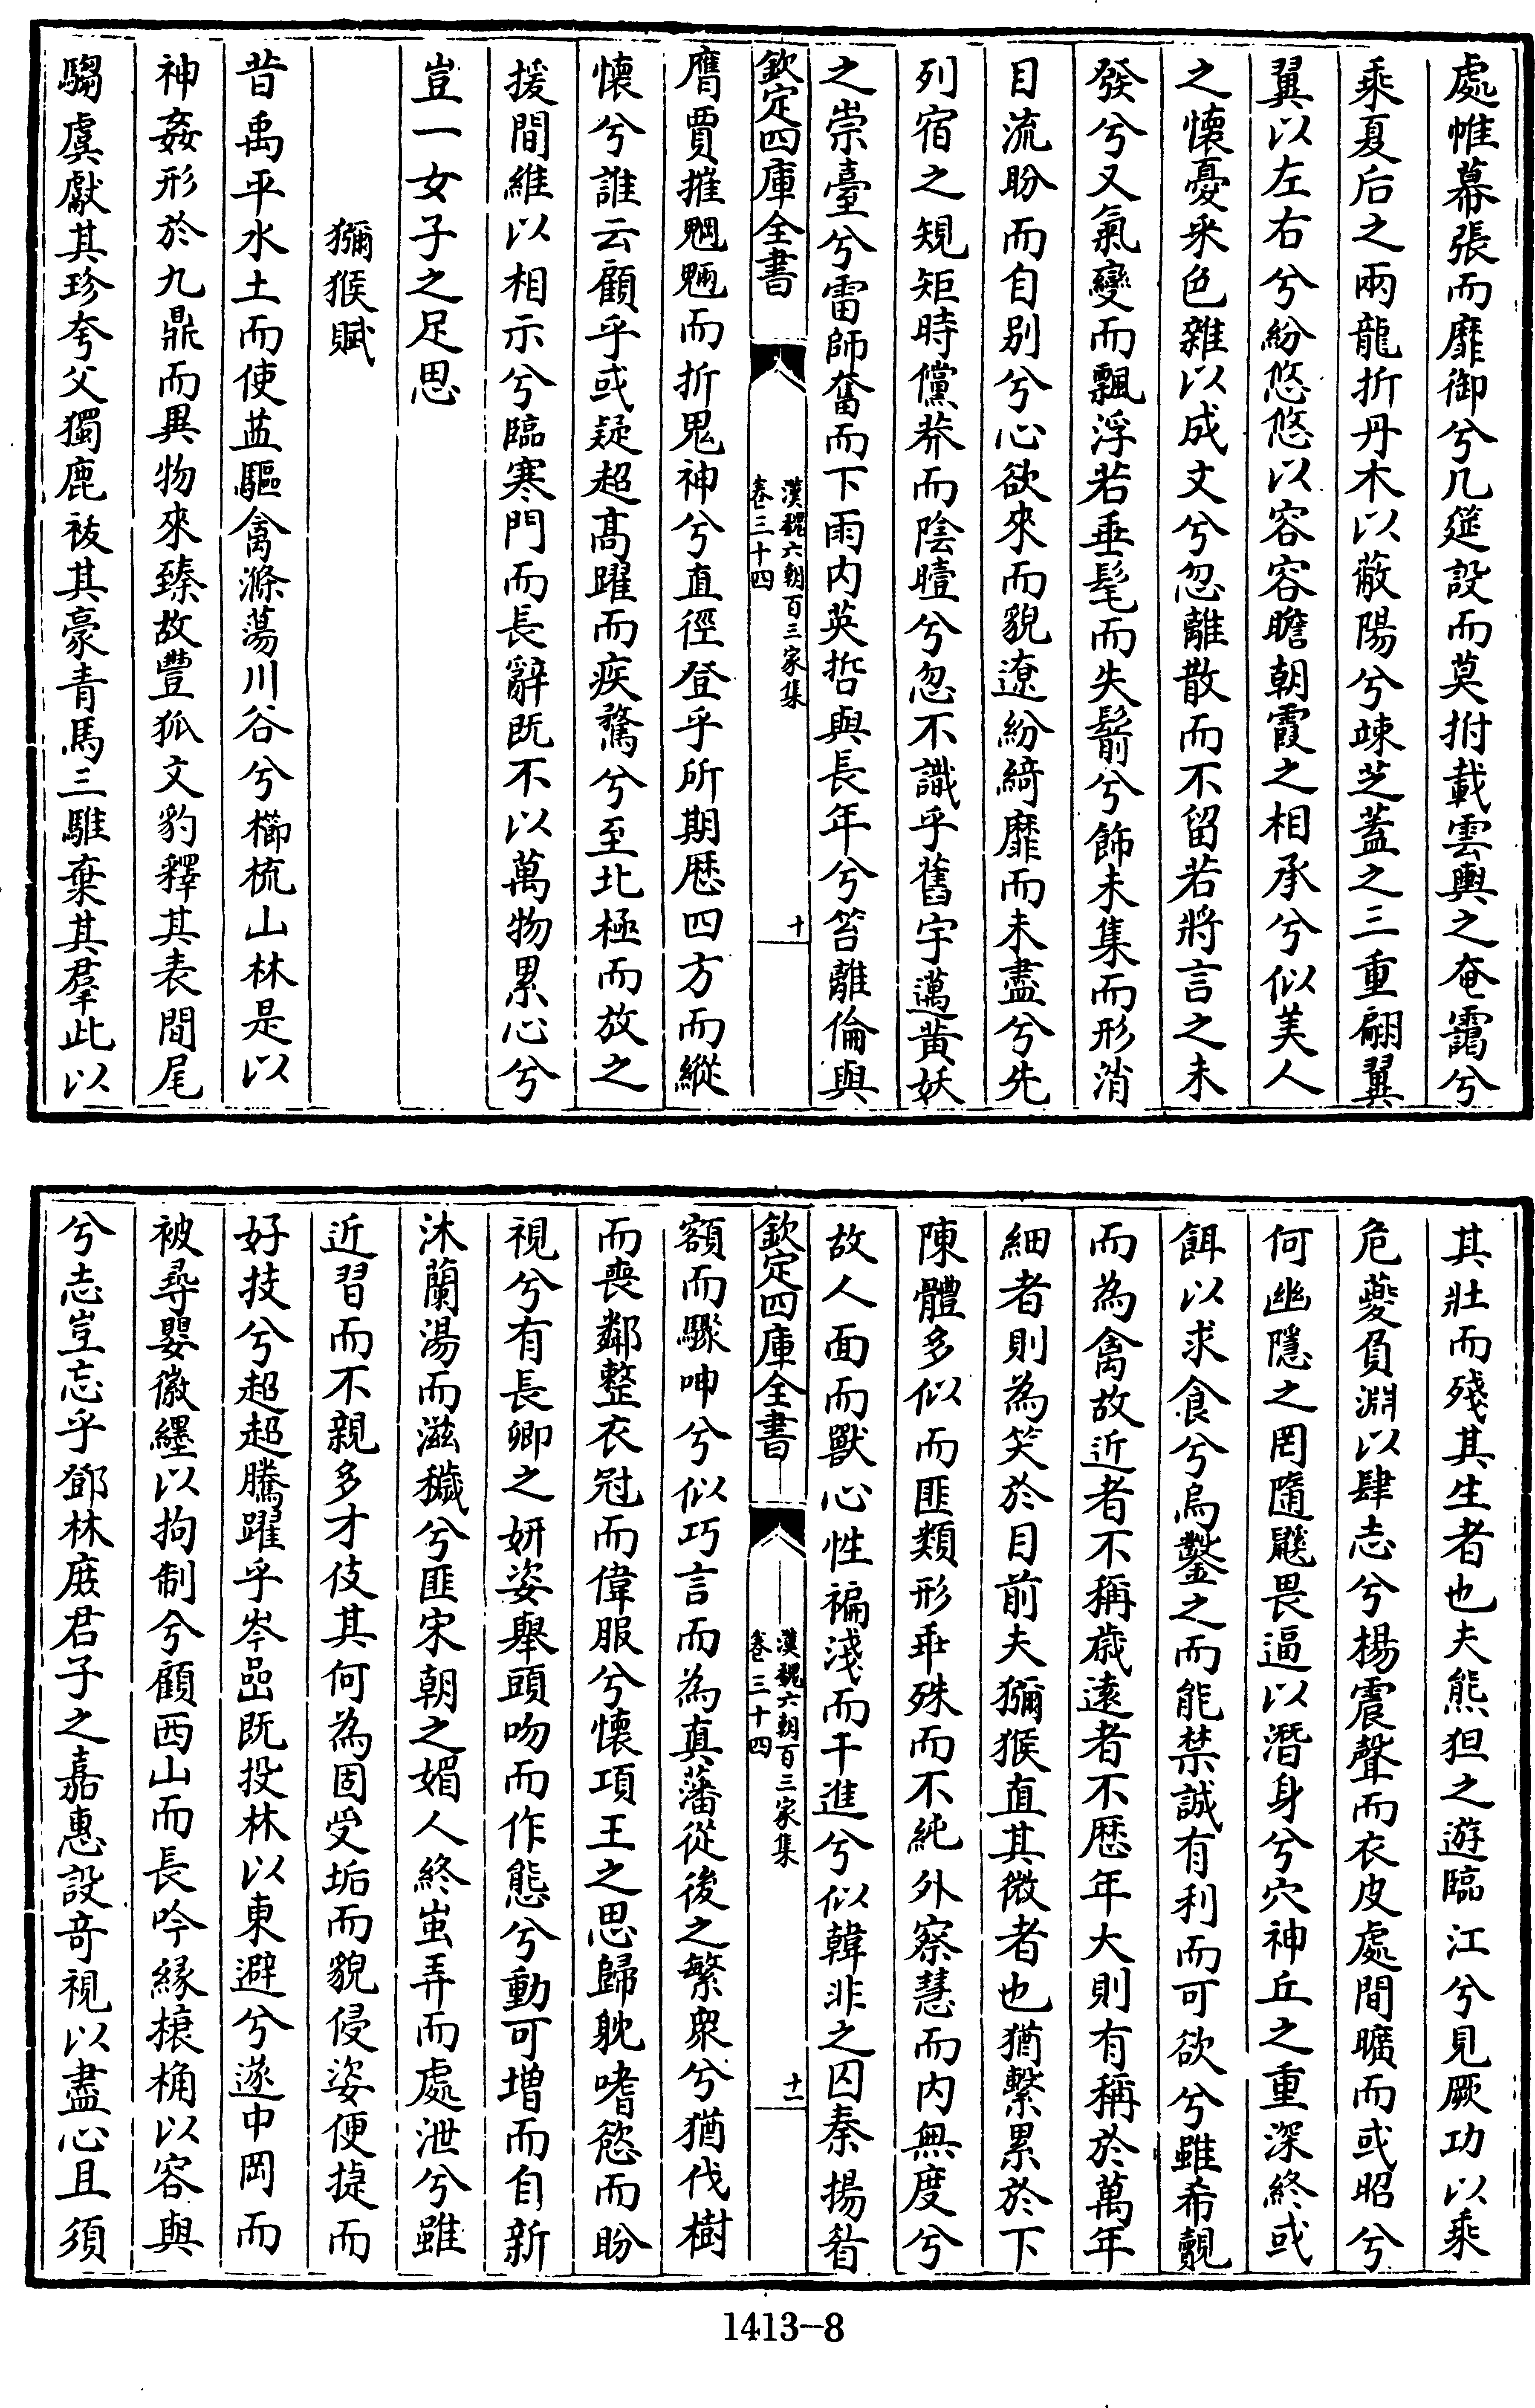 處帷幕張而靡御兮几筵設而莫拊載雲輿之奄靄兮
乘夏后之兩龍折丹木以蔽陽兮竦芝蓋之三重翩翼
翼以左右兮紛悠悠以容容瞻朝霞之相承兮似美人
之懷憂采色雜以成文兮忽離散而不留若將言之未
發兮又氣變而飄浮若垂髦而失鬋兮飾未集而形消
目流盼而自别兮心欲來而貌遼紛綺靡而未盡兮先
列宿之規矩時儻莽而陰曀兮忽不識乎舊宇邁黄妖
之崇臺兮雷師奮而下雨内英哲與長年兮笞離倫與
欽定四庫全書
漢魏六朝百三家集
卷三十四
十
膺賈摧魍魎而折鬼神兮直徑登乎所期歴四方而縱
懷兮誰云顧乎或疑超髙躍而疾騖兮至北極而放之
援間維以相示兮臨寒門而長辭既不以萬物累心兮
豈一女子之足思
獮猴賦
昔禹平水土而使益驅禽滌蕩川谷兮櫛梳山林是以
神姦形於九鼎而異物來臻故豐狐文豹釋其表間尾
騶虞獻其珍夸父獨鹿祓其豪青馬三騅棄其羣此以
其壯而殘其生者也夫熊狚之遊臨江兮見厥功以乘
危夔負淵以肆志兮楊震聲而衣皮處間曠而或昭兮
何幽隱之罔隨鼷畏逼以潛身兮穴神丘之重深終或
餌以求食兮烏鑿之而能禁誠有利而可欲兮雖希覿
而為禽故近者不稱歲逺者不歴年大則有稱於萬年
細者則為笑於目前夫獮猴直其微者也猶繫累於下
陳體多似而匪類形乖殊而不純外察慧而内無度兮
故人面而獸心性褊淺而干進兮似韓非之囚秦揚眉
欽定四庫全書
漢魏六朝百三家集
卷三十四
十一
額而驟呻兮似巧言而為真藩從後之繁衆兮猶伐樹
而喪鄰整衣冠而偉服兮懷項王之思歸躭嗜慾而盼
視兮有長卿之妍姿舉頭吻而作態兮動可增而自新
沐蘭湯而滋穢兮匪宋朝之媚人終蚩弄而處泄兮雖
近習而不親多才伎其何為固受垢而貌侵姿便捷而
好技兮超超騰躍乎岑嵒既投林以東避兮遂中岡而
被尋嬰徽纆以拘制兮顧西山而長吟緣榱桷以容與
兮志豈忘乎鄧林庶君子之嘉惠設竒視以盡心且須
1413-8